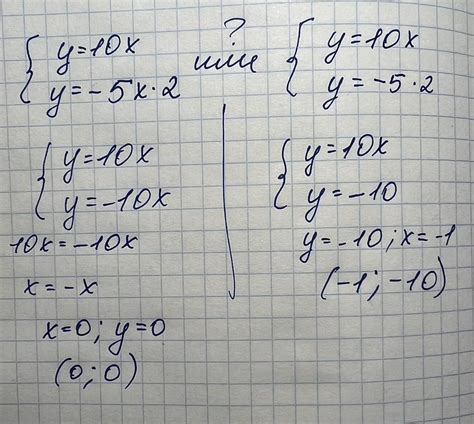 y=10x
y=-5x·2
?
или
y=10x
y=-5·2
y=10x
y=-10x
10x=-10x
x=-x
x=0; y=0
(0; 0)
y=10x
y=-10
y=-10; x=-1
(-1; -10)